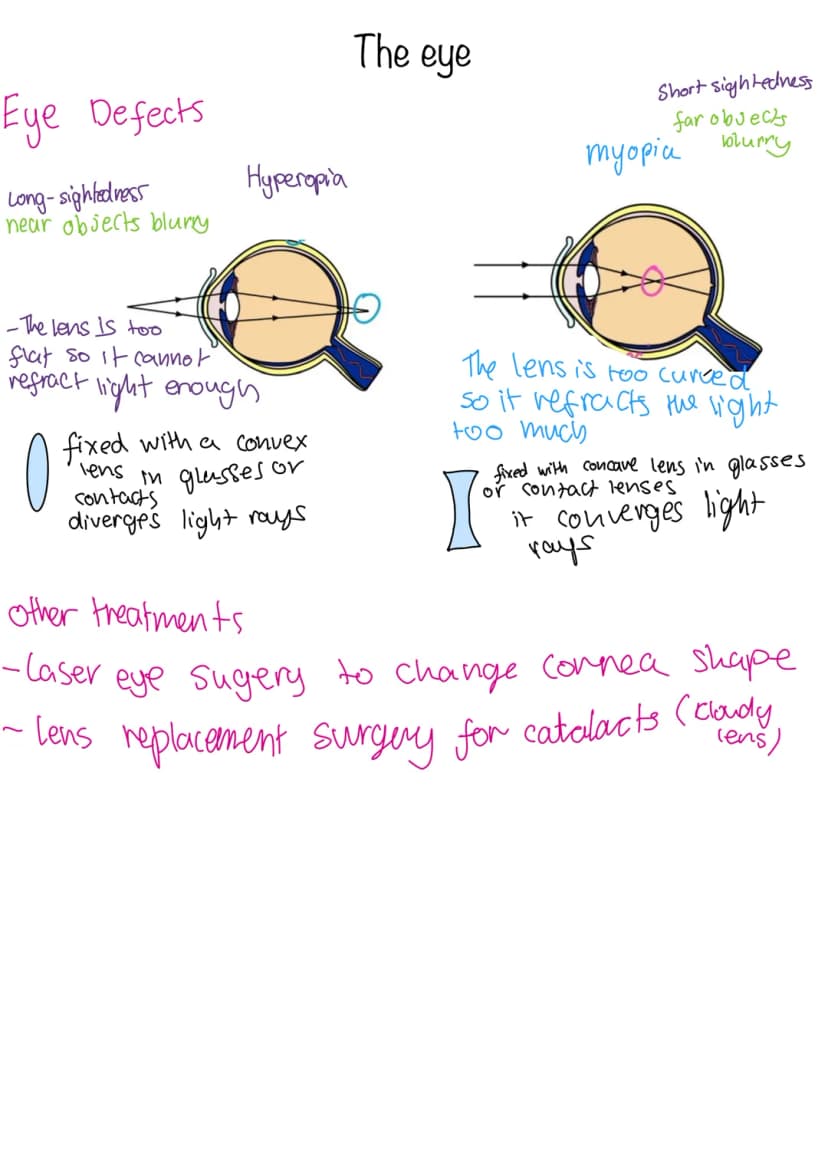 The eye
Eye Defects
Long-sightedness
near objects blurry
Hyperopia
Short sightedness
far objects
blurry
myopia
-The lens is too
flat so it cannot
refract light enough
fixed with a convex
lens in glasses or
contacts
diverges light rays
The lens is too curved
so it refracts the light
too much
fixed with concave lens in glasses
or contact lenses
it converges light
rays
other treatments
-Laser eye sugery to change cornea shape
- lens replacement surgery for catalacts (cloudy
lens)